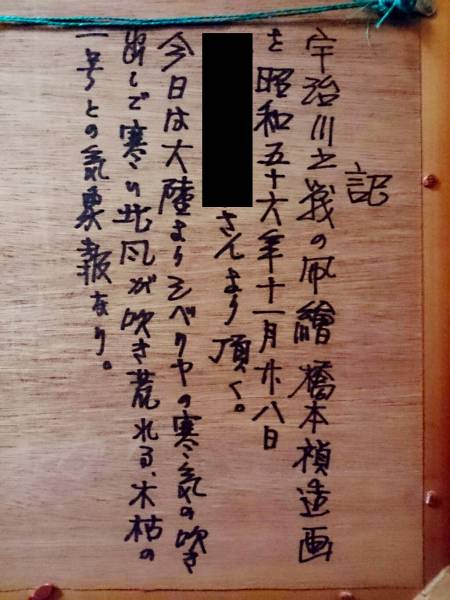 記
宇治川之戦の凧繪 橋本禎造画
を昭和五十六年十一月廿八日
さんより頂く。
今日は大陸よりシベリヤの寒気の吹き
出しで寒い北風が吹き荒れる、木枯の
一号との気象報なり。